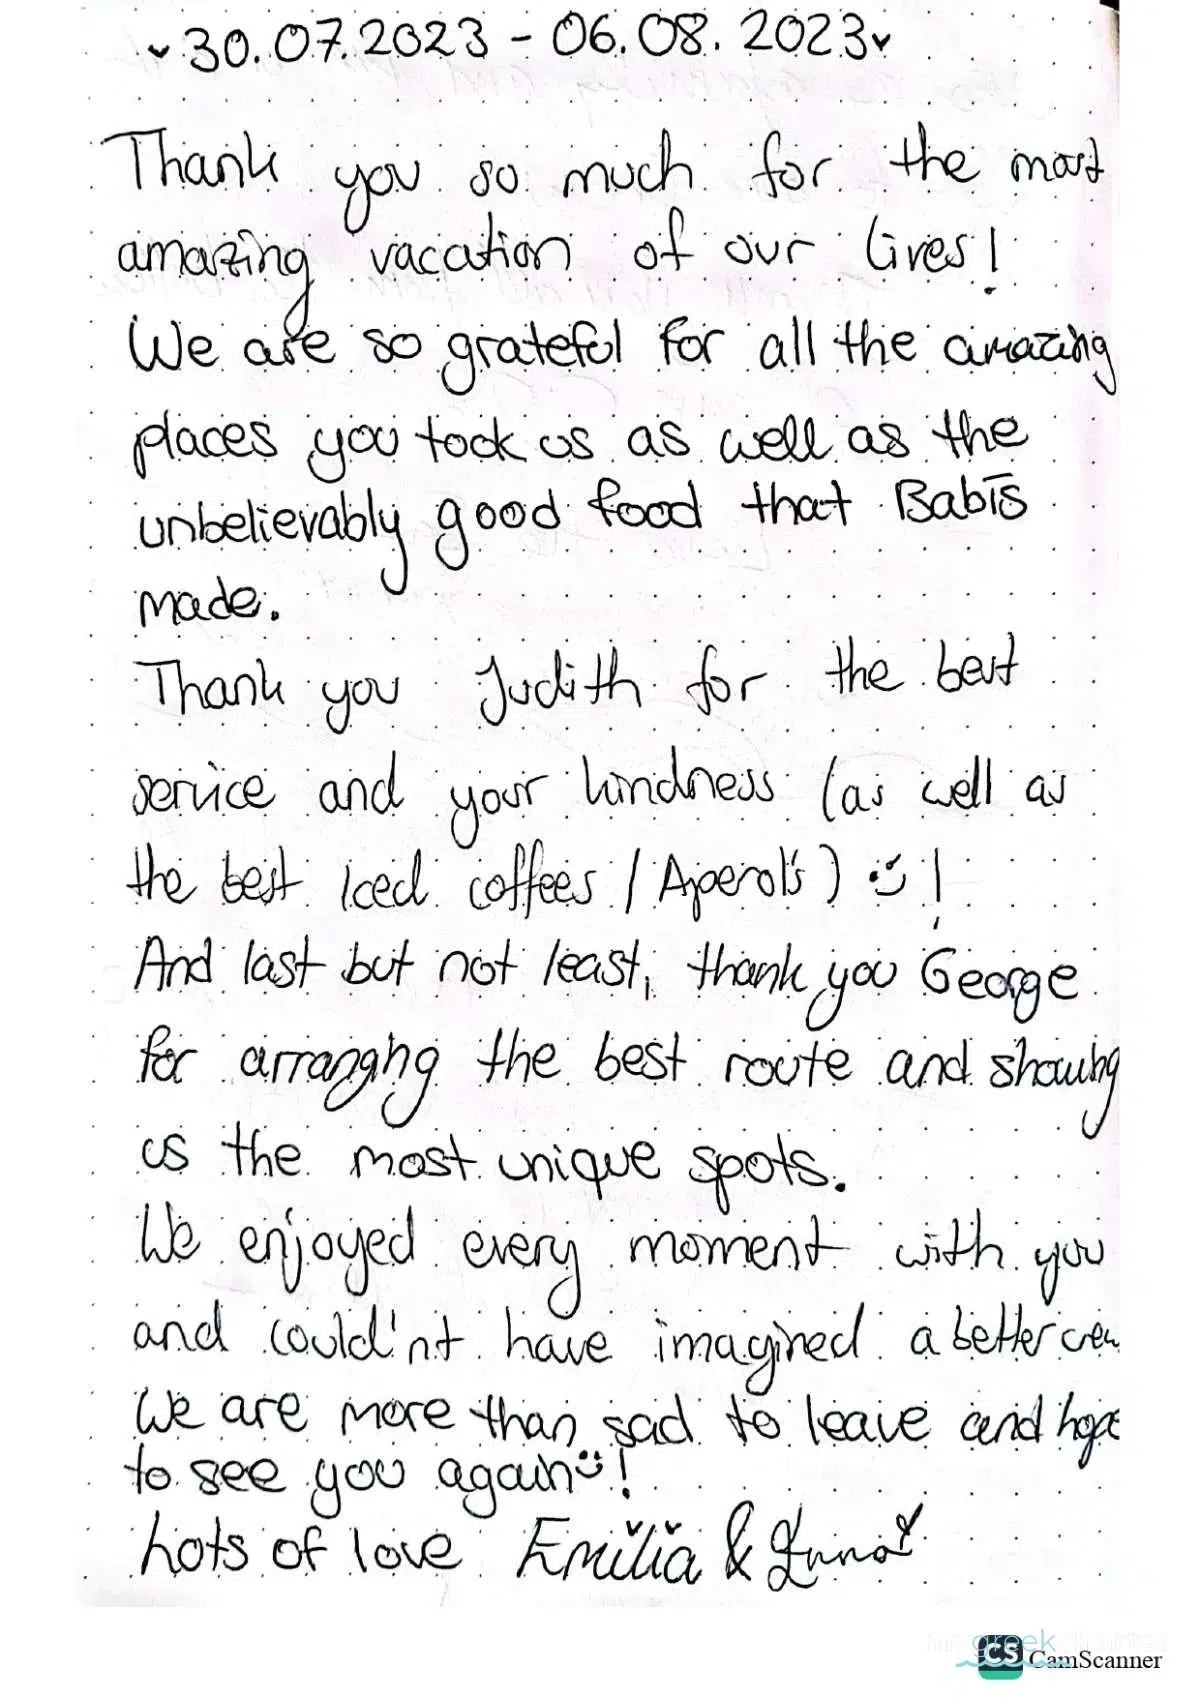 ♥ 30.07.2023 - 06.08.2023 ♥
Thank you so much for the most
amazing vacation of our lives!
We are so grateful for all the amazing
places you took us as well as the
unbelievably good food that Babis
made.
Thank you Judith for the best
service and your kindness (as well as
the best Iced coffees / Aperol's) :)!
And last but not least, thank you George
for arranging the best route and showing
us the most unique spots.
We enjoyed every moment with you
and could'nt have imagined a better crew
We are more than sad to leave and hope
to see you again :)!
hots of love Emilia &
mygreekcharter
CS CamScanner